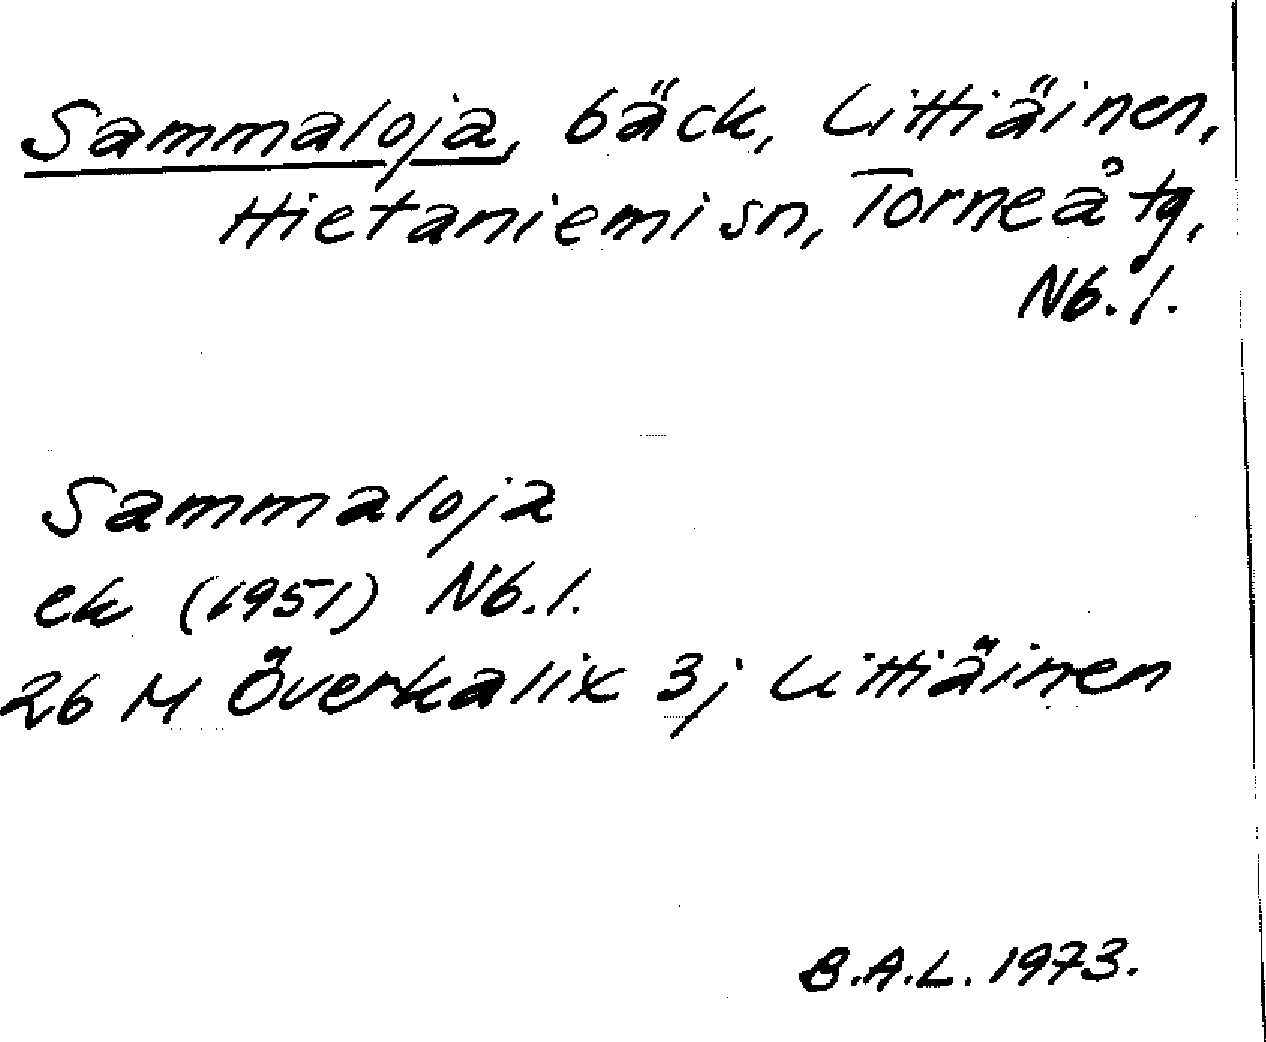 Sammaloja, bäck, Littiäinen,
Hietaniemi sn, Torneå tg,
Nb. l.
Sammaloja
ek (1951) Nb. l.
26 M Överkalix 3j Littiäinen
B.A.L. 1973.